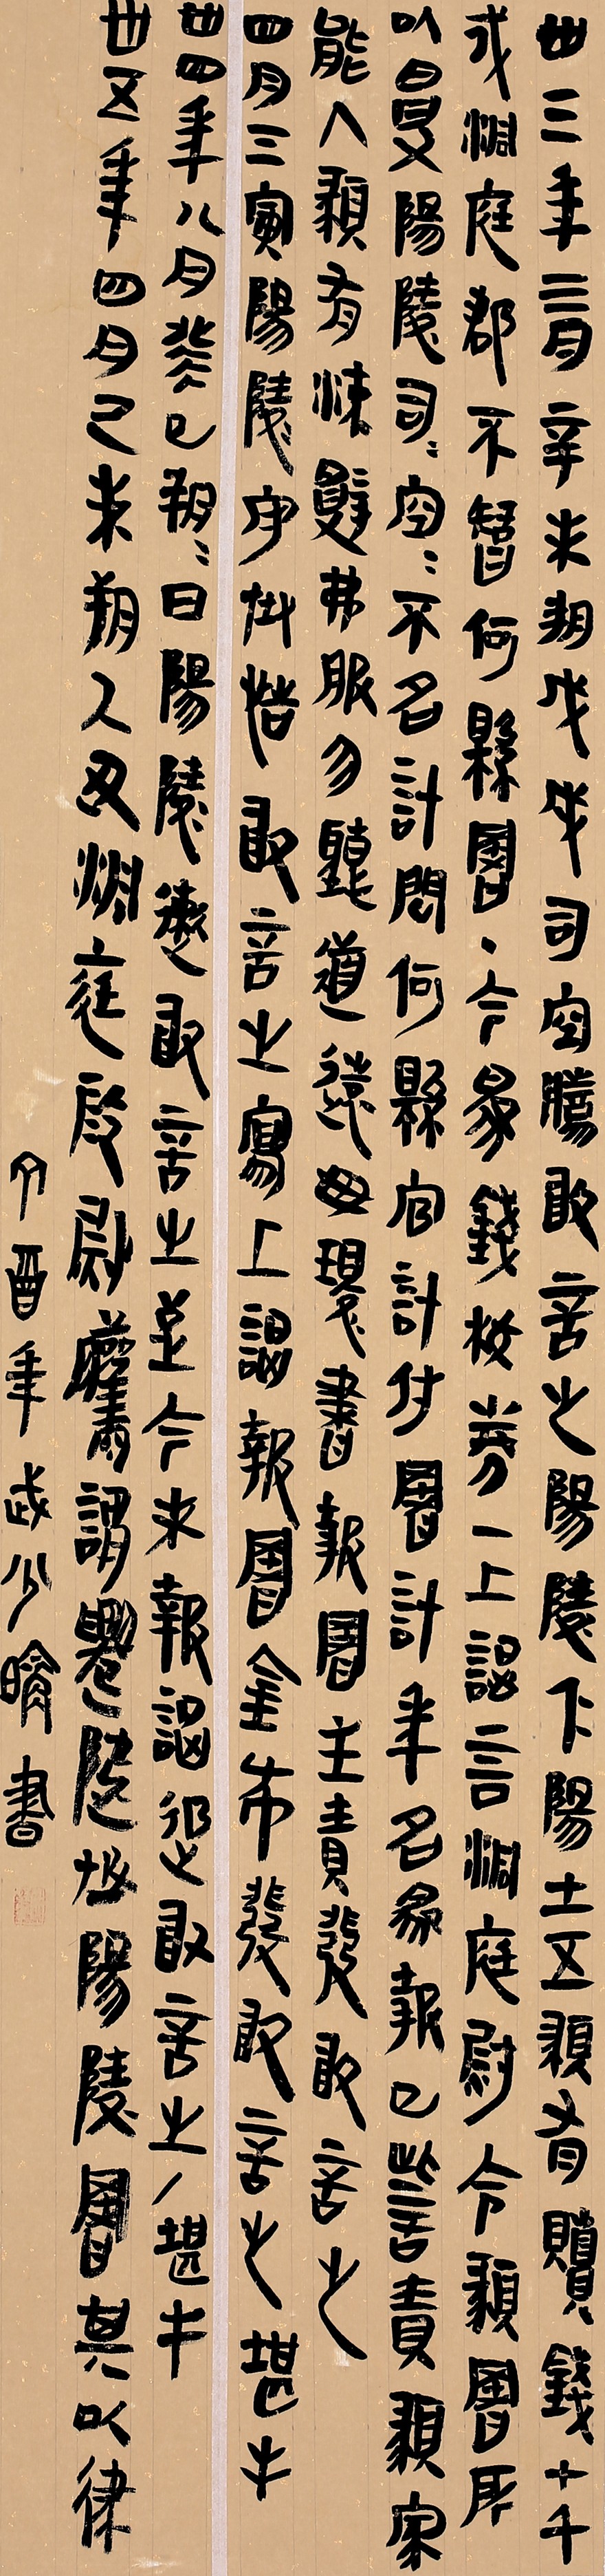 卅三年三月辛未朔戊戌司空騰敢言之陽陵下陽士五顤有贖錢七千
戍洞庭郡不智何縣署・今為錢校券一上謁言洞庭尉令顤署所
以曰受陽陵司=空=不名計問何縣官計付署計年名為報已訾責顤家
能入顤有流辭弗服勿聽道遠毋環書報署主責發敢言之
四月壬寅陽陵守丞恬敢言之寫上謁報署金布發敢言之堪手
卅四年八月癸巳朔=日陽陵遬敢言之至今未報謁追敢言之/堪手
卅五年四月己未朔乙丑洞庭叚尉觿謂遷陵丞陽陵署其以律
丁酉年武少書